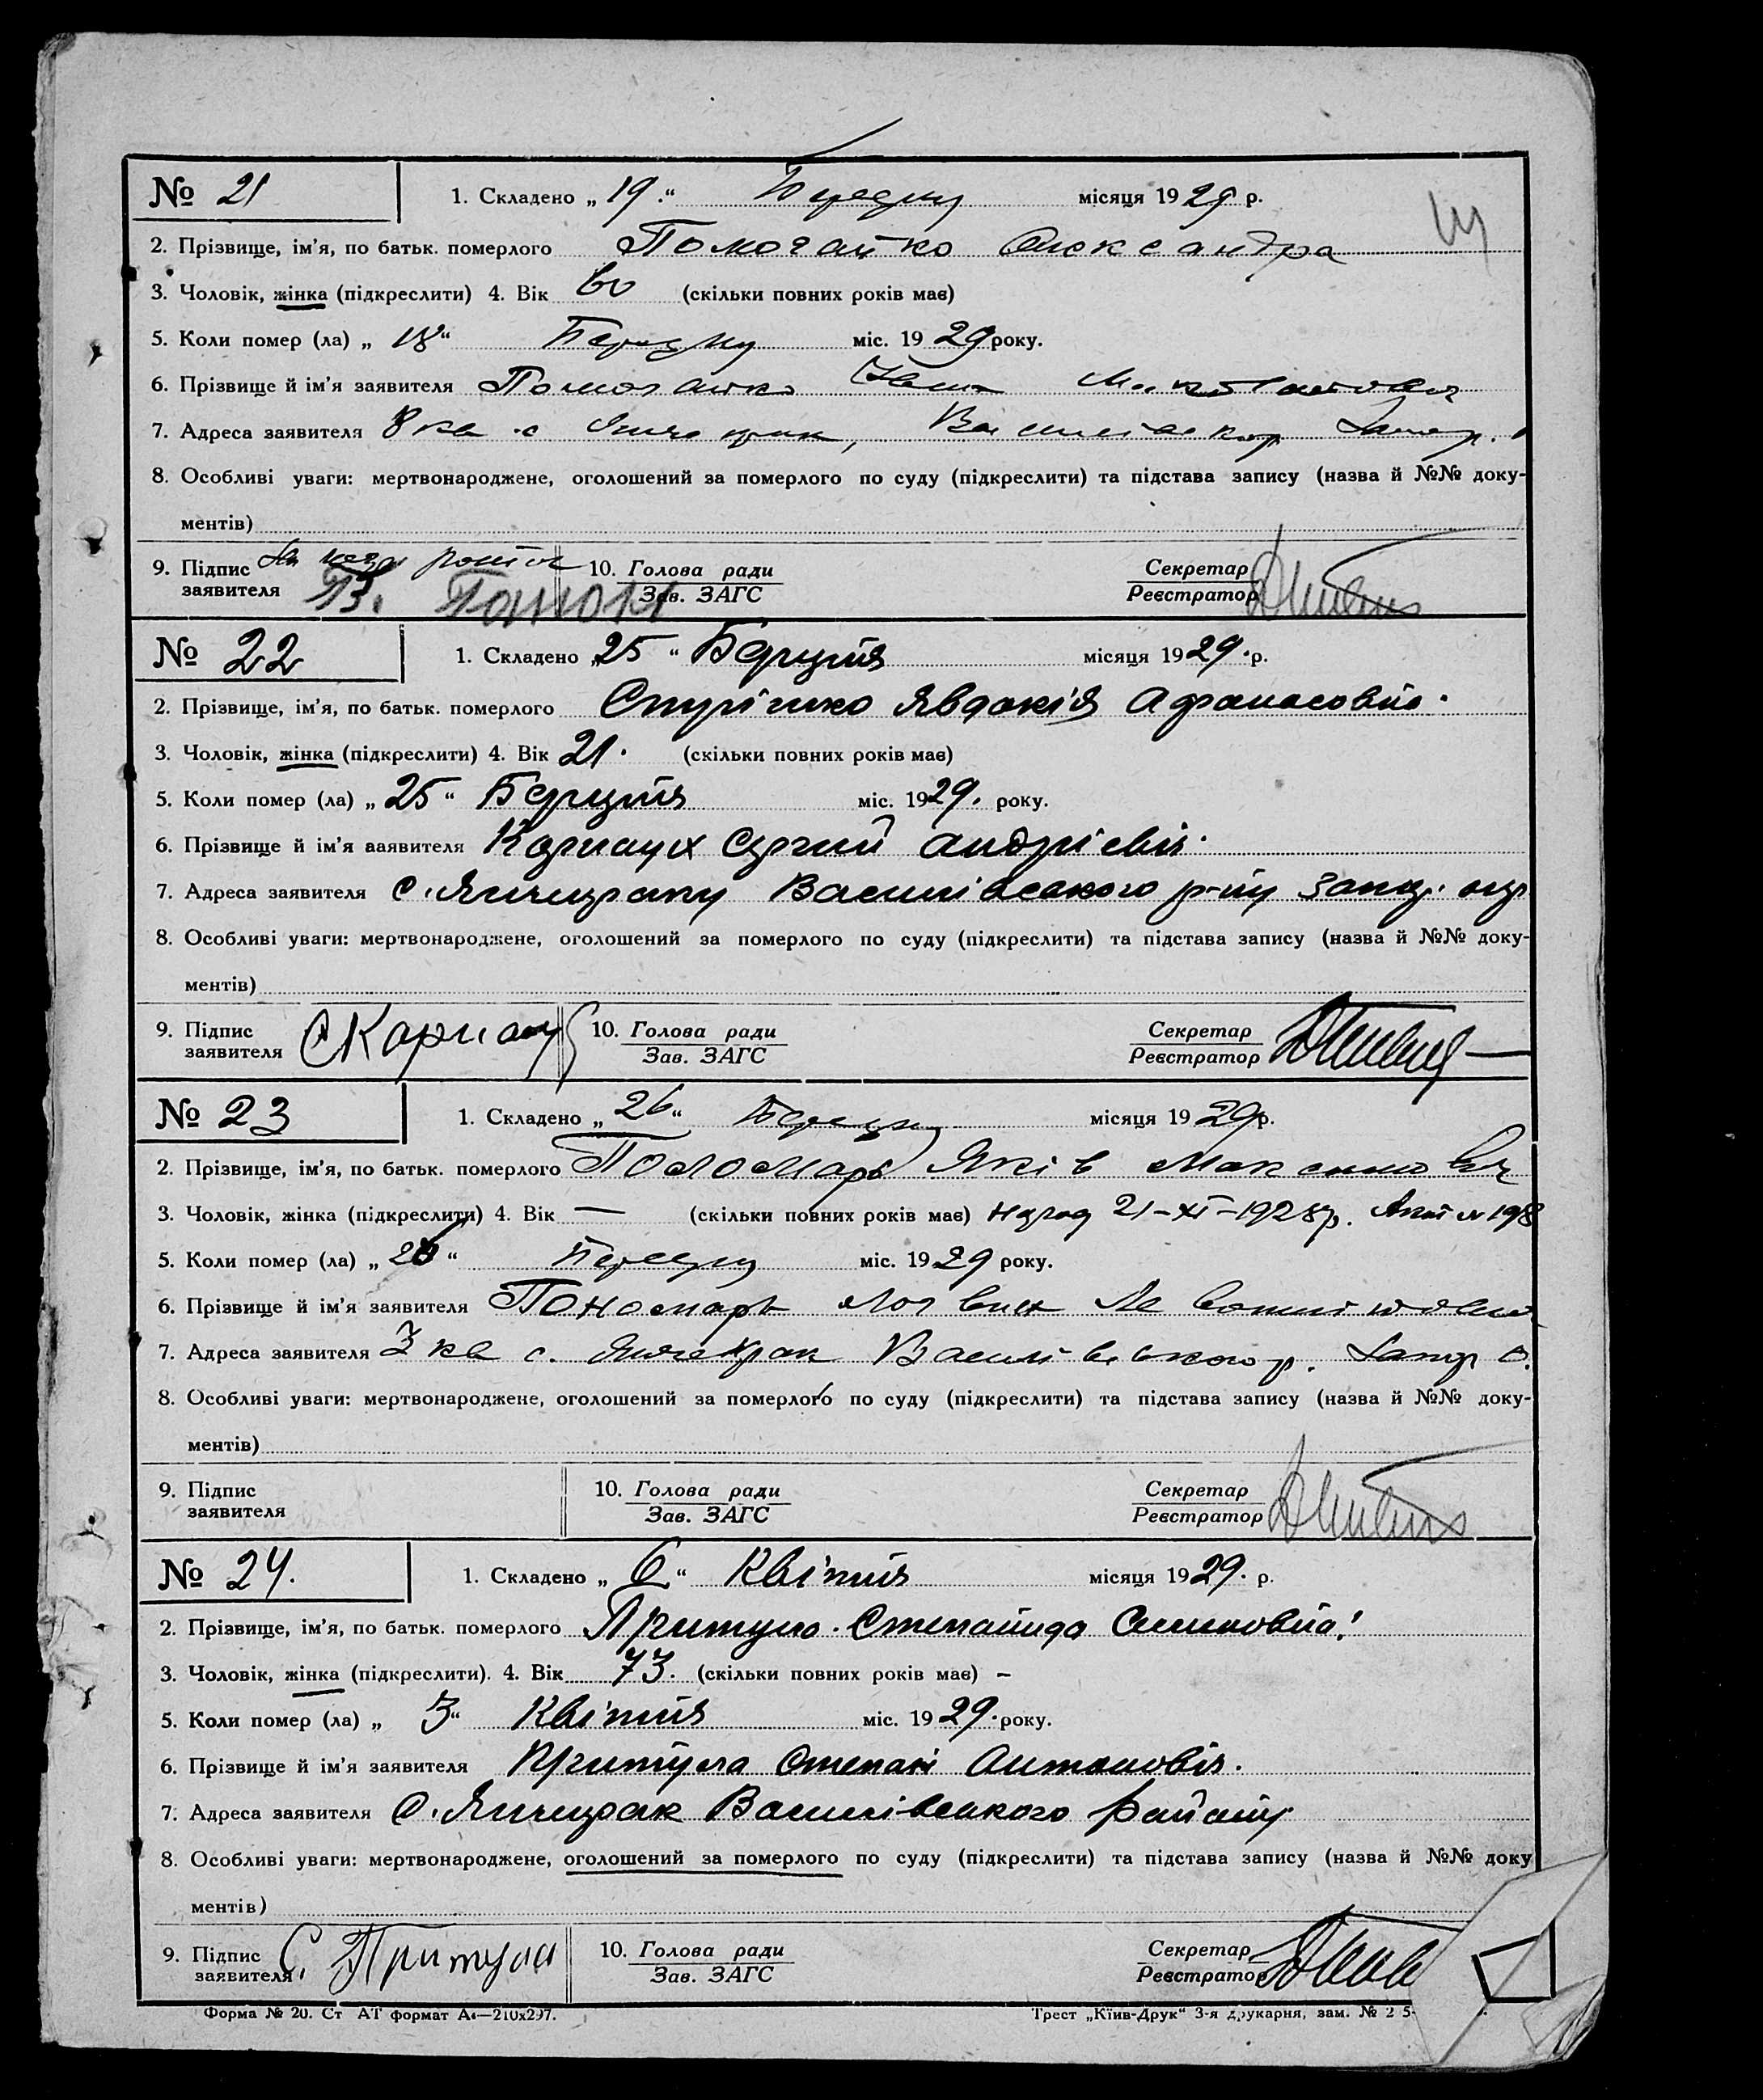 № 21 1. Складено „19“ Березня місяця 1929 р.
2. Прізвище, ім'я, по батьк. померлого Помогайко Олександра
3. Чоловік, жінка (підкреслити) 4. Вік 60 (скільки повних років має)
5. Коли помер (ла) „18“ Березня міс. 1929 року.
6. Прізвище й ім'я заявителя Помогайко
7. Адреса заявителя 8 кв с Янчекрак, Запор.
8. Особливі уваги: мертвонароджене, оголошений за померлого по суду (підкреслити) та підстава запису (назва й №№ доку-
ментів)
9. Підпис за 10. Голова ради Секретар
заявителя Зав. ЗАГС Реєстратор
№ 22 1. Складено „25“ Березня місяця 1929. р.
2. Прізвище, ім'я, по батьк. померлого Явдокія Афанасовна.
3. Чоловік, жінка (підкреслити) 4. Вік 21. (скільки повних років має)
5. Коли помер (ла) „25“ Березня міс. 1929. року.
6. Прізвище й ім'я заявителя Карнаух Сергий Андрієвіч.
7. Адреса заявителя с. Янчекраку Василівського р-ну Запор. окр
8. Особливі уваги: мертвонароджене, оголошений за померлого по суду (підкреслити) та підстава запису (назва й №№ доку-
ментів)
9. Підпис С Карнаух 10. Голова ради Секретар
заявителя Зав. ЗАГС Реєстратор
№ 23 1. Складено „26“ Березня місяця 1929 р.
2. Прізвище, ім'я, по батьк. померлого Пономарь Яків Максимович
3. Чоловік, жінка (підкреслити) 4. Вік — (скільки повних років має) народ 21-XI-1928р. Акт № 198
5. Коли помер (ла) „26“ Березня міс. 1929 року.
6. Прізвище й ім'я заявителя Пономарь
7. Адреса заявителя 3 кв с. Янчекрак Василівського р. Запор О.
8. Особливі уваги: мертвонароджене, оголошений за померлого по суду (підкреслити) та підстава запису (назва й №№ доку-
ментів)
9. Підпис 10. Голова ради Секретар
заявителя Зав. ЗАГС Реєстратор
№ 24. 1. Складено „6“ Квітня місяця 1929. р.
2. Прізвище, ім'я, по батьк. померлого Притула Степанида Семеновна.
3. Чоловік, жінка (підкреслити). 4. Вік 73. (скільки повних років має) –
5. Коли помер (ла) „3“ Квітня міс. 1929. року.
6. Прізвище й ім'я заявителя Притула Степан Антоновіч.
7. Адреса заявителя с. Янчекрак Василівського Району
8. Особливі уваги: мертвонароджене, оголошений за померлого по суду (підкреслити) та підстава запису (назва й №№ доку
ментів)
9. Підпис С. Притула 10. Голова ради Секретар
заявителя Зав. ЗАГС Реєстратор
Форма № 20. Ст АТ формат А4—210х297. Трест „Київ-Друк“ 3-я друкарня, зам. № 2 5-